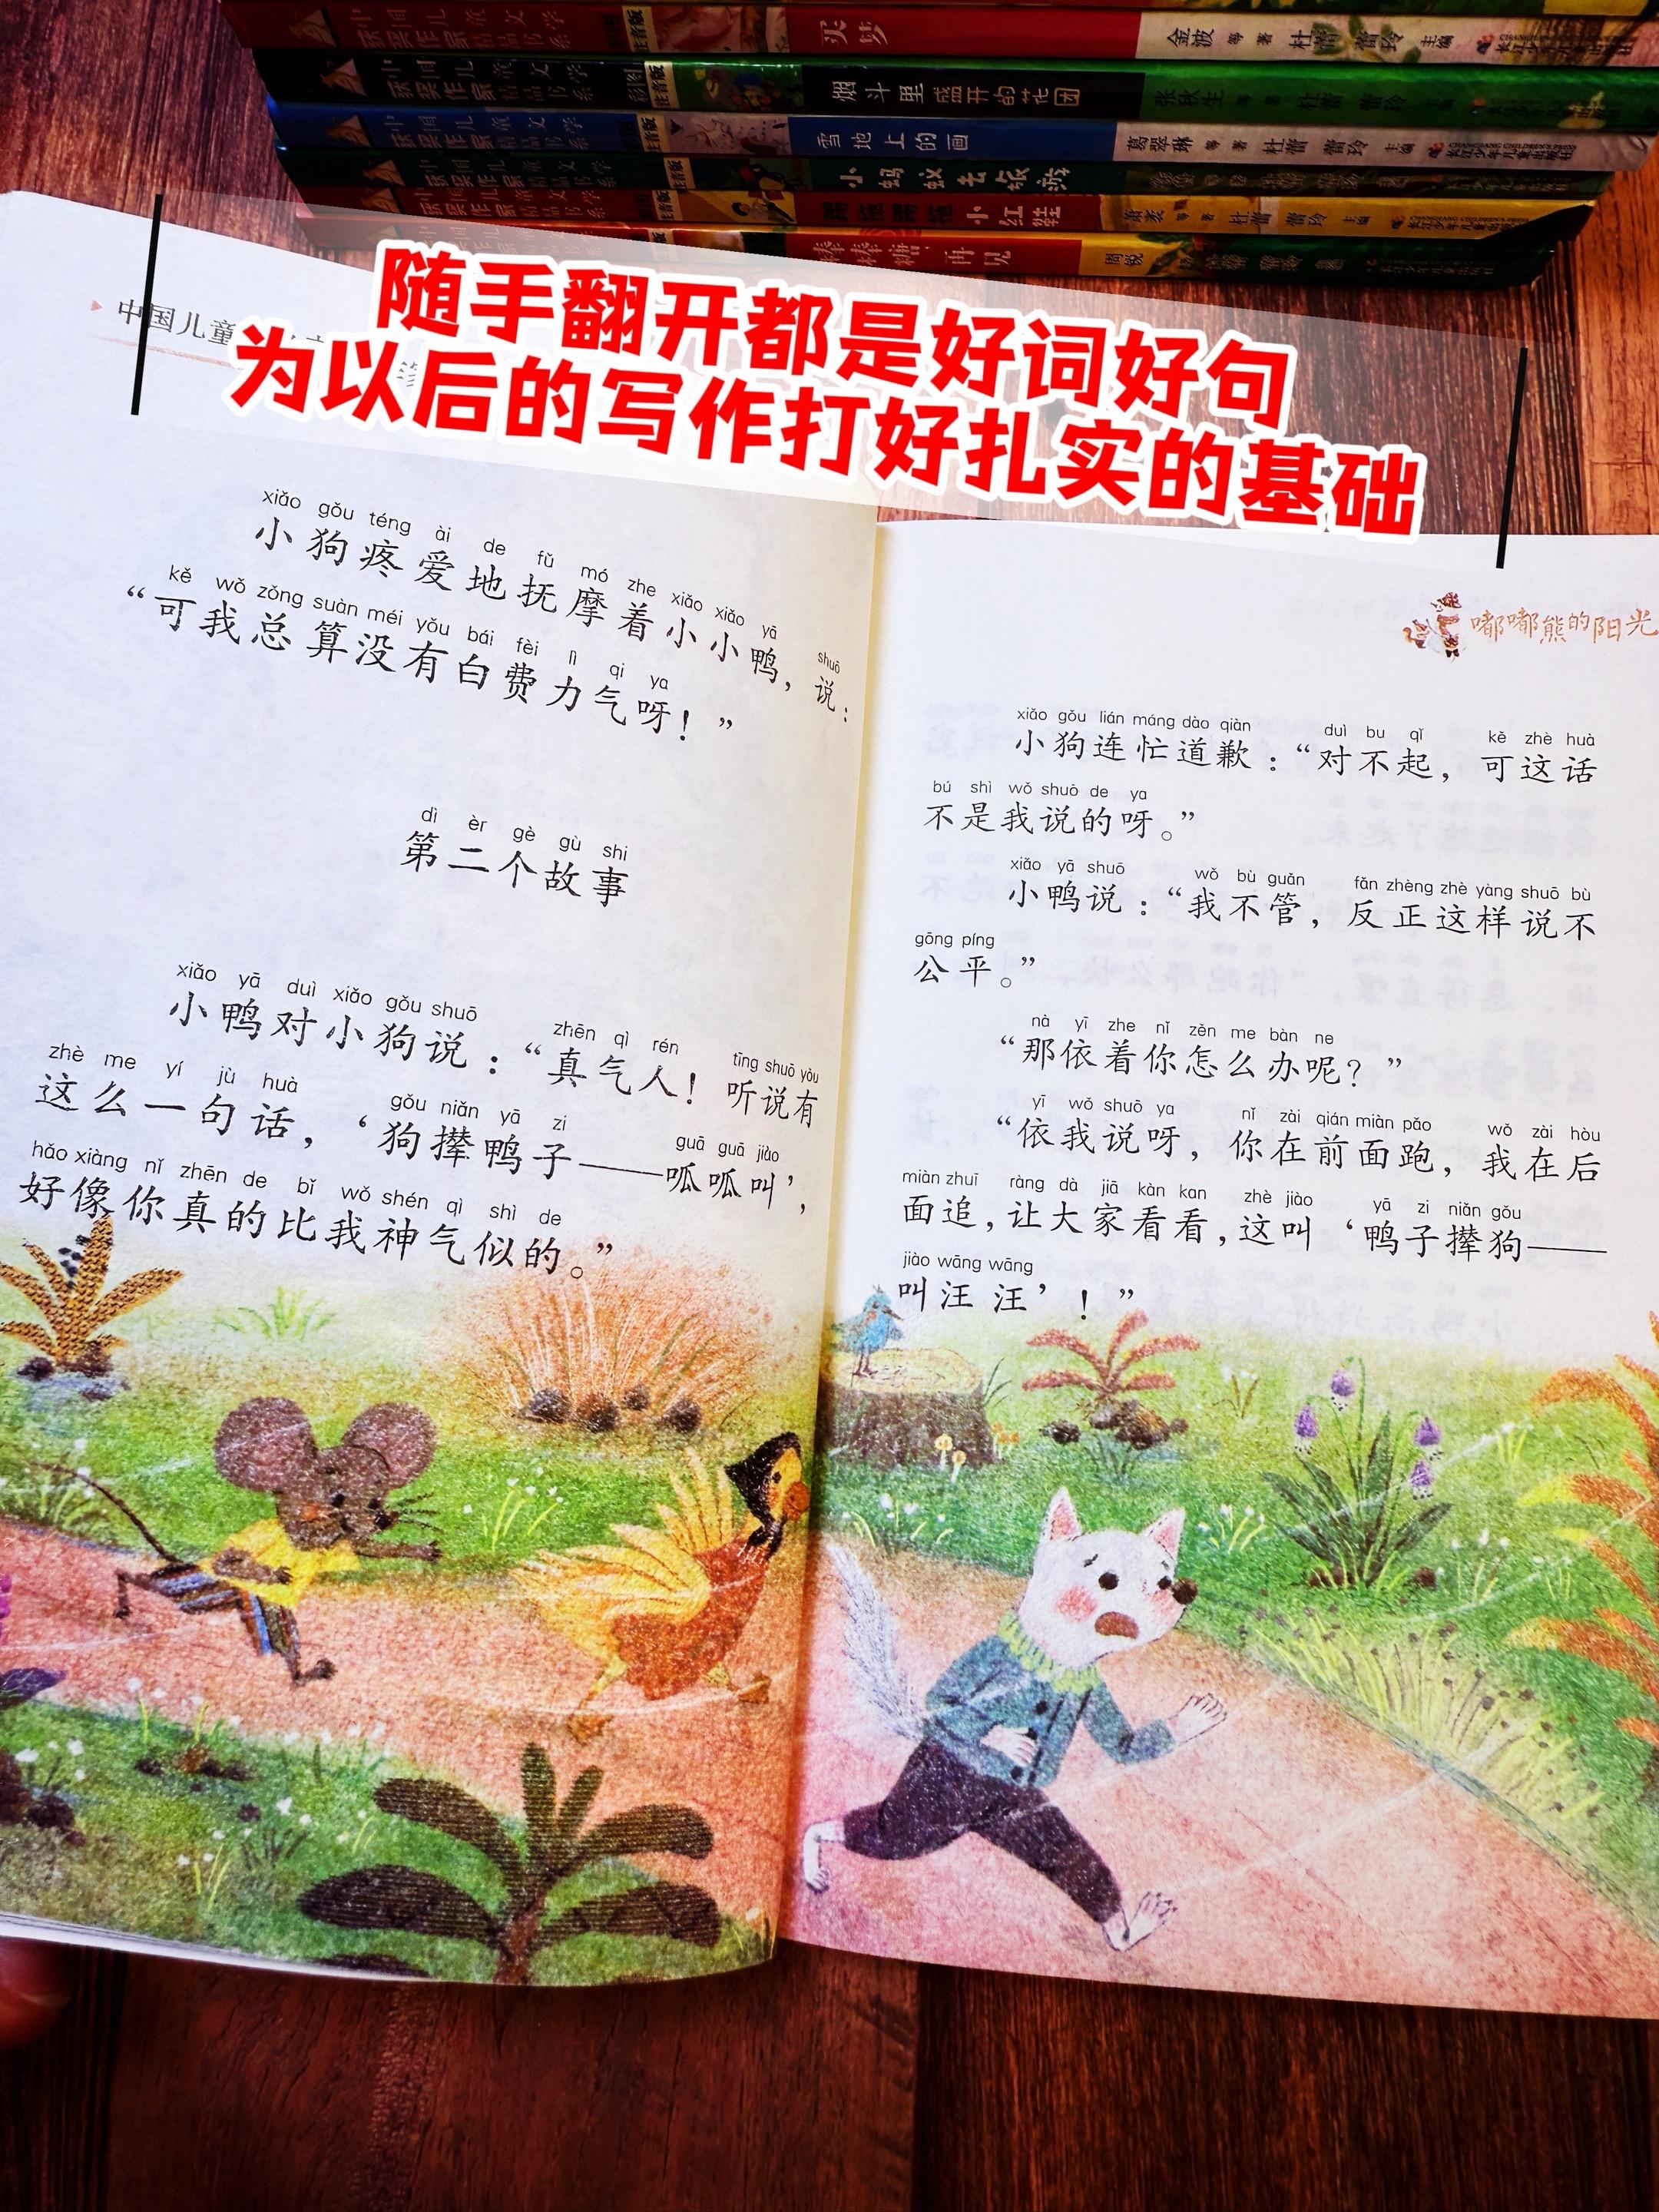 中国儿童文学
获奖作家精品书系
注音版
买梦
金波 等著 杜蕾 蕾玲 主编
中国儿童文学
获奖作家精品书系
彩图
注音版
烟斗里盛开的花园
张秋生 等著 杜蕾 蕾玲
中国儿童文学
获奖作家精品书系
雪地上的画
葛翠琳 等著 杜蕾 蕾玲 主编
长江少年儿童出版社
小蚂蚁去旅游
小红鞋
等著 杜蕾 蕾玲 主编
棒棒糖,再见
周锐
随手翻开都是好词好句
为以后的写作打好扎实的基础
中国儿童
xiǎo gǒu téng ài de fǔ mó zhe xiǎo xiǎo yā shuō
小狗疼爱地抚摩着小小鸭，说：
kě wǒ zǒng suàn méi yǒu bái fèi lì qi ya
“可我总算没有白费力气呀！”
dì èr gè gù shi
第二个故事
xiǎo yā duì xiǎo gǒu shuō zhēn qì rén tīng shuō yòu
小鸭对小狗说：“真气人！听说有
zhè me yí jù huà gǒu niǎn yā zi guā guā jiào
这么一句话，‘狗撵鸭子——呱呱叫’，
hǎo xiàng nǐ zhēn de bǐ wǒ shén qì shì de
好像你真的比我神气似的。”
嘟嘟熊的阳光
xiǎo gǒu lián máng dào qiàn duì bu qǐ kě zhè huà
小狗连忙道歉：“对不起，可这话
bú shì wǒ shuō de ya
不是我说的呀。”
xiǎo yā shuō wǒ bù guǎn fǎn zhèng zhè yàng shuō bù
小鸭说：“我不管，反正这样说不
gōng píng
公平。”
nà yī zhe nǐ zěn me bàn ne
“那依着你怎么办呢？”
yī wǒ shuō ya nǐ zài qián miàn pǎo wǒ zài hòu
“依我说呀，你在前面跑，我在后
miàn zhuī ràng dà jiā kàn kan zhè jiào yā zi niǎn gǒu
面追，让大家看看，这叫‘鸭子撵狗——
jiào wāng wāng
叫汪汪’！”